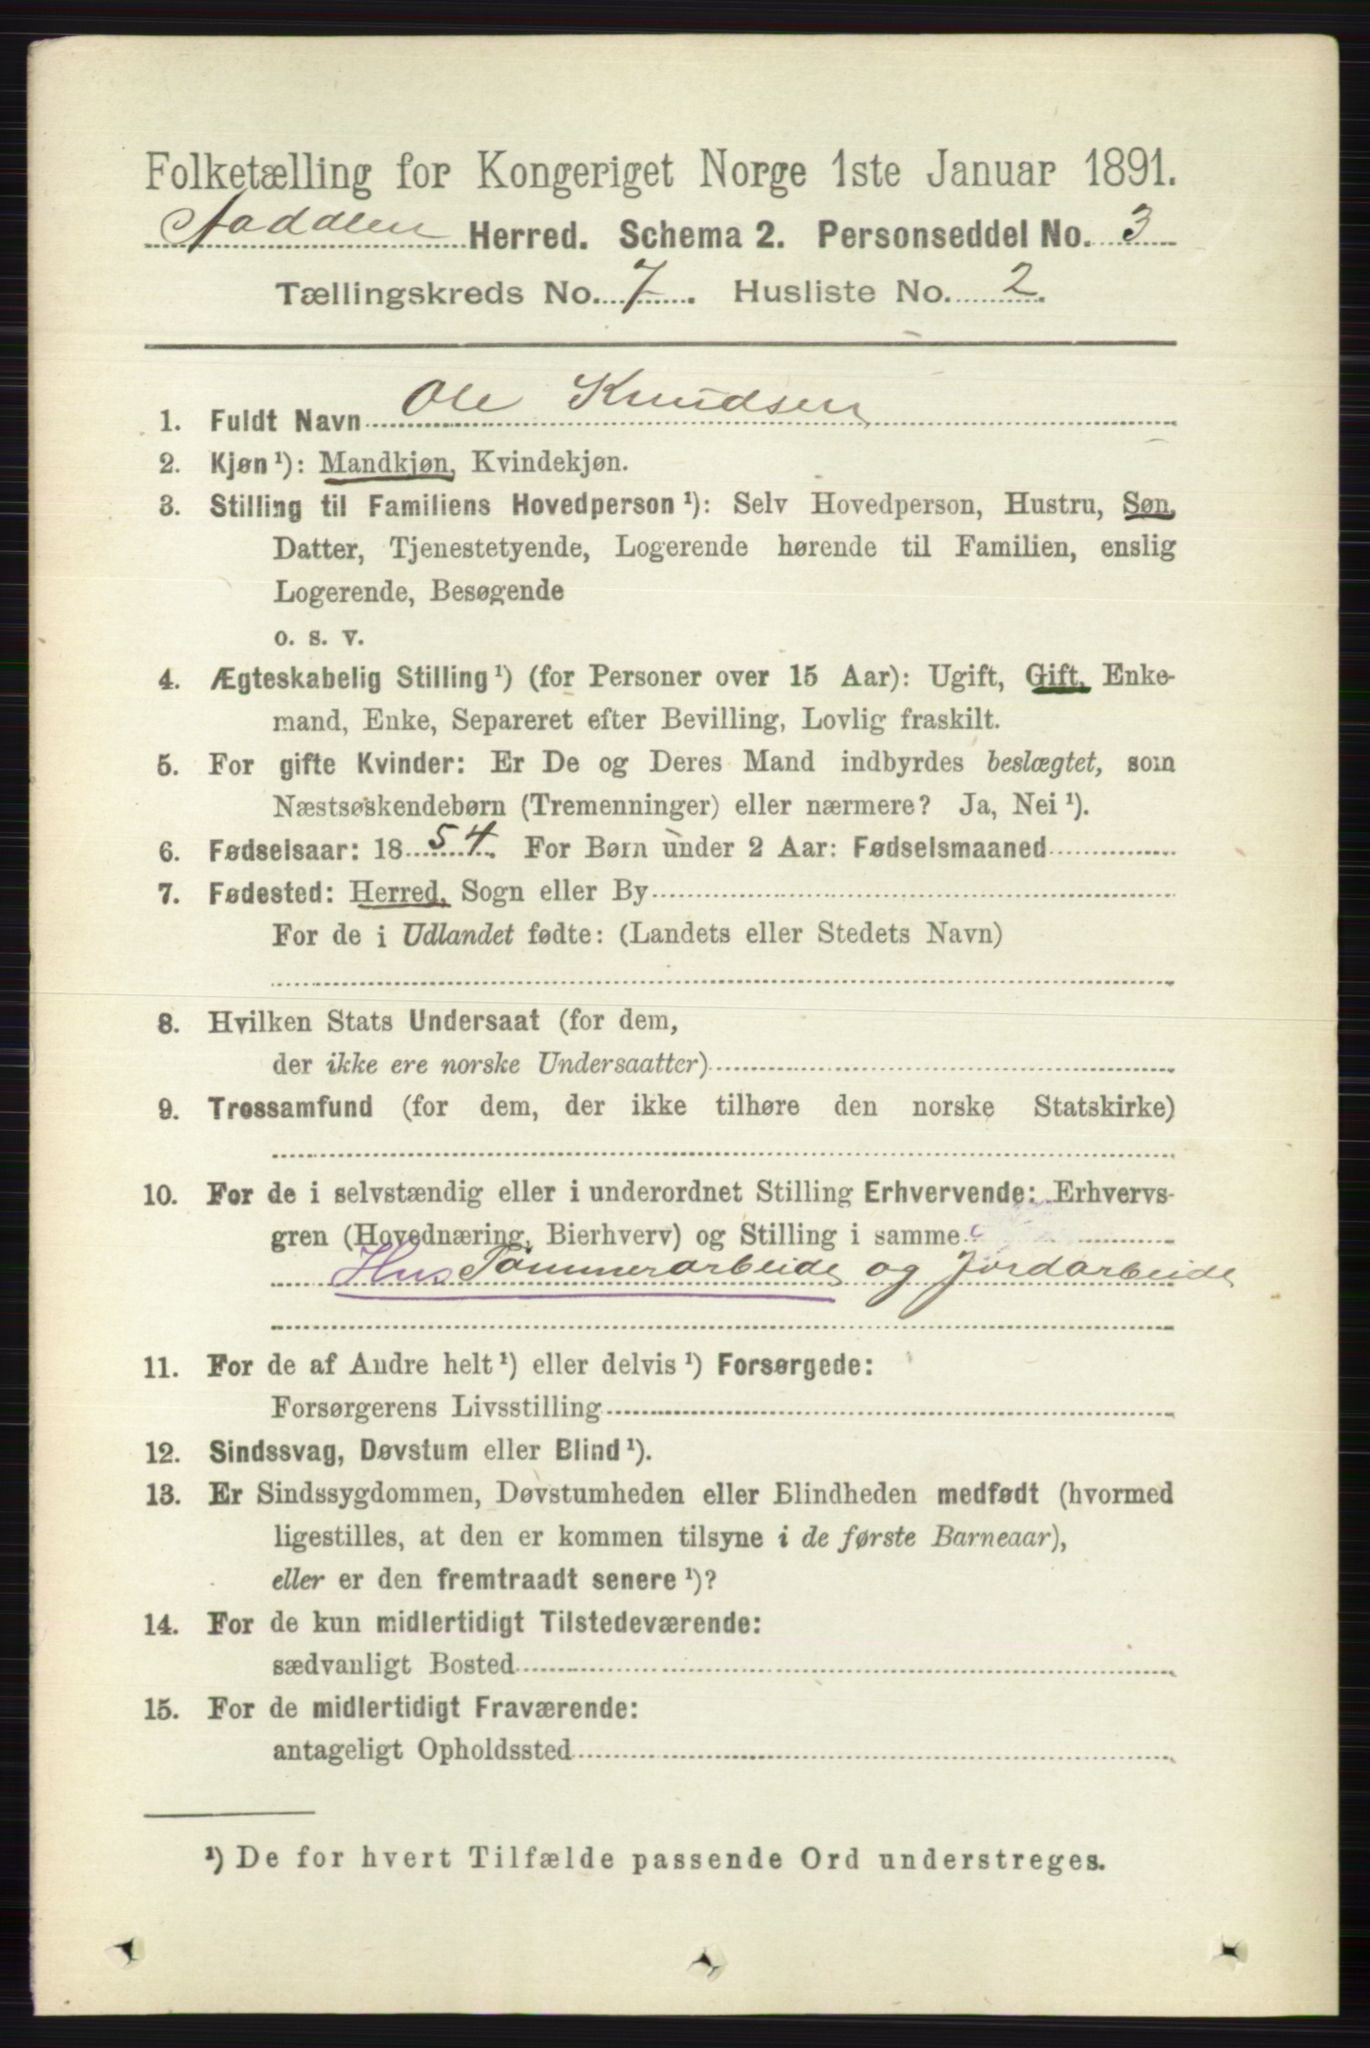 Folketælling for Kongeriget Norge 1ste Januar 1891.
Aaddlen Herred. Schema 2. Personseddel No. 3
Tællingskreds No. 7. Husliste No. 2.
1. Fuldt Navn Ole Knudsen
2. Kjøn ¹): Mandkjøn, Kvindekjøn.
3. Stilling til Familiens Hovedperson ¹): Selv Hovedperson, Hustru, Søn,
Datter, Tjenestetyende, Logerende hørende til Familien, enslig
Logerende, Besøgende
o. s. v.
4. Ægteskabelig Stilling ¹) (for Personer over 15 Aar): Ugift, Gift, Enke-
mand, Enke, Separeret efter Bevilling, Lovlig fraskilt.
5. For gifte Kvinder: Er De og Deres Mand indbyrdes beslægtet, som
Næstsøskendebørn (Tremenninger) eller nærmere? Ja, Nei ¹).
6. Fødselsaar: 1854. For Børn under 2 Aar: Fødselsmaaned
7. Fødested: Herred, Sogn eller By
For de i Udlandet fødte: (Landets eller Stedets Navn)
8. Hvilken Stats Undersaat (for dem,
der ikke ere norske Undersaatter)
9. Trossamfund (for dem, der ikke tilhøre den norske Statskirke)
10. For de i selvstændig eller i underordnet Stilling Erhvervende: Erhvervs-
gren (Hovednæring, Bierhverv) og Stilling i samme
Hus Tømmerarbeide og Jordarbeide
11. For de af Andre helt ¹) eller delvis ¹) Forsørgede:
Forsørgerens Livsstilling
12. Sindssvag, Døvstum eller Blind ¹).
13. Er Sindssygdommen, Døvstumheden eller Blindheden medfødt (hvormed
ligestilles, at den er kommen tilsyne i de første Barneaar),
eller er den fremtraadt senere ¹)?
14. For de kun midlertidigt Tilstedeværende:
sædvanligt Bosted
15. For de midlertidigt Fraværende:
antageligt Opholdssted
¹) De for hvert Tilfælde passende Ord understreges.